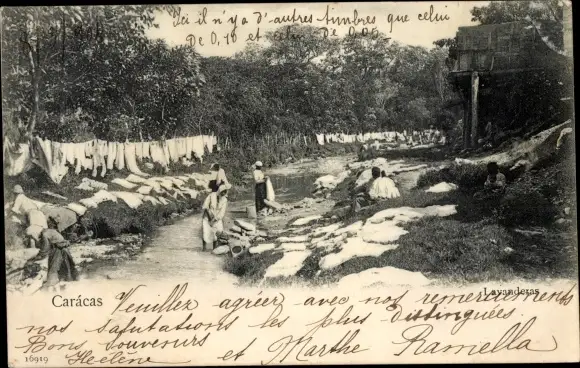 Ici il n'ya d'autres timbres que celui
De 0,10 et De 0,05
Carácas
Lavanderas
Veuillez agréer avec nos remerciements
nos salutations les plus distinguées
Bons souvenirs
16919
Hélène et Marthe Ramella